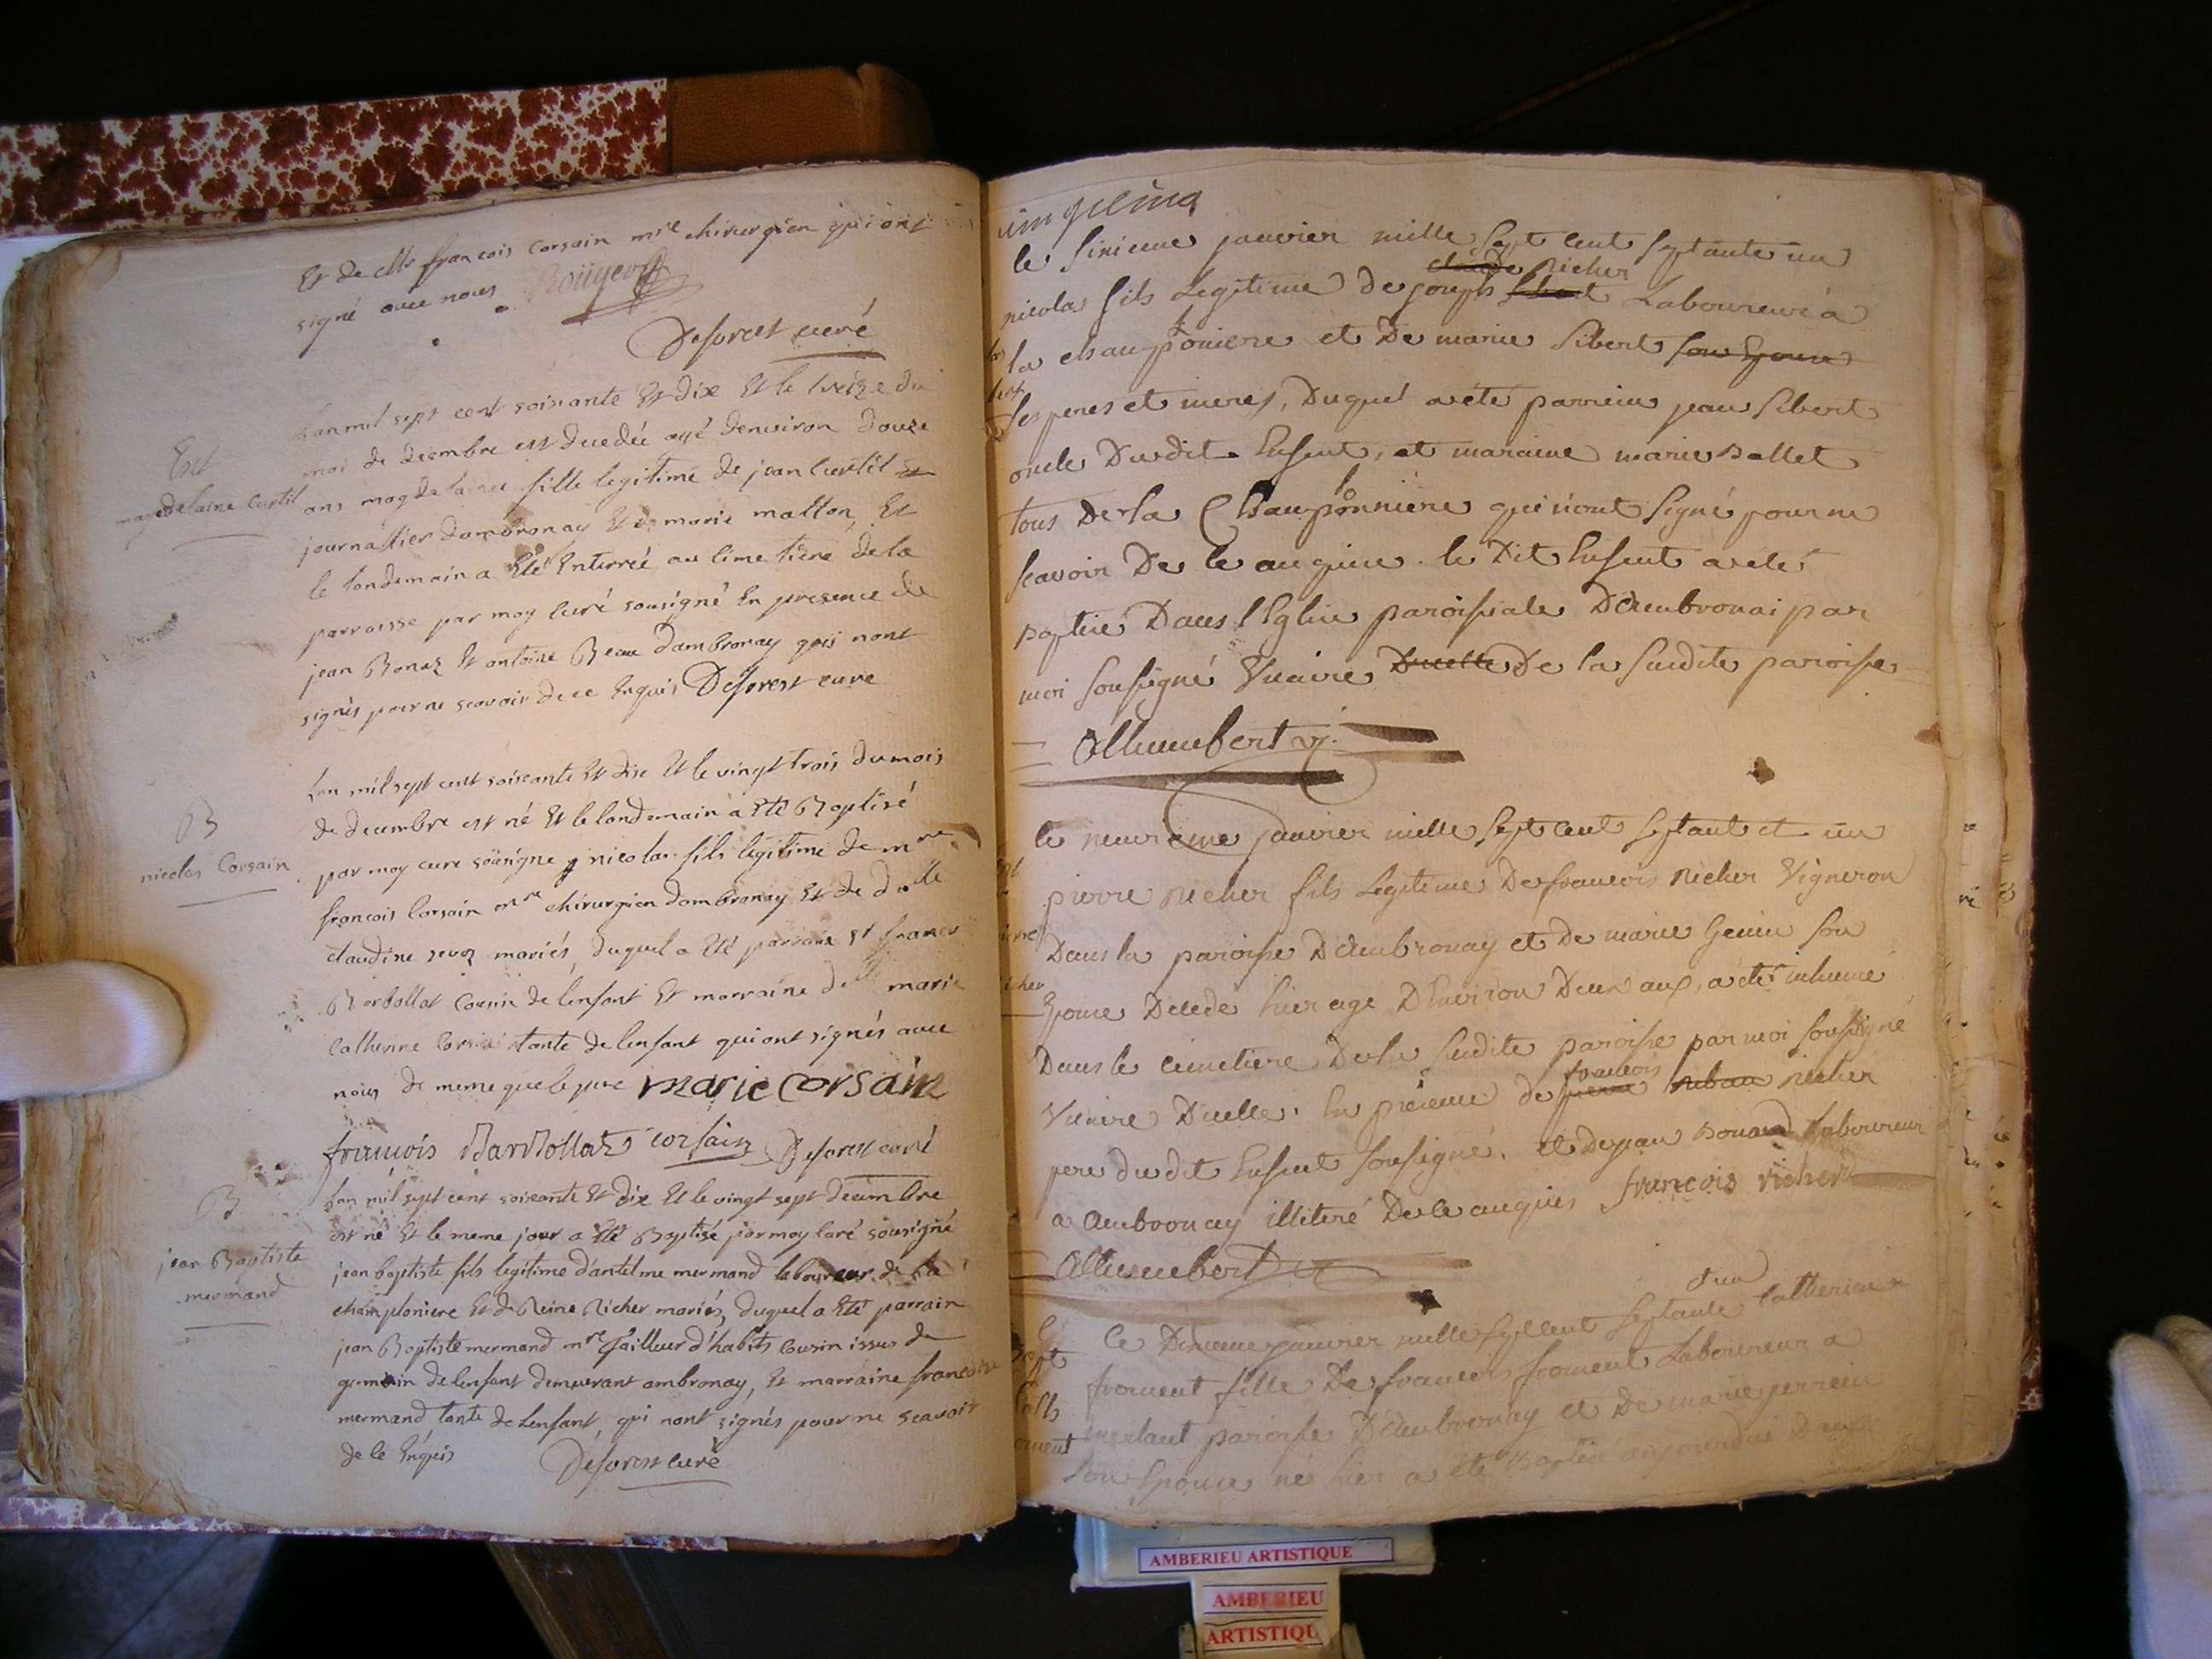 Et de Mr françois Corsain mre chirurgien qui ont
signé avec nous Roüyer
Deforest curé
L'an mil sept cent soixante Et dix Et le treize du
moi de decembre est decedée agé denviron douze
ans magdelaine fille legitime de jean Curtil
journallier dambronay Et de marie malton, Et
le londemain a Eté Enterrée au cimetiere de la
parroisse par moy curé sousigné En presence de
jean Bonaz Et antoine Beau dambronay qui nont
signés pour ne scavoir de ce Enquis Deforest curé
Ent
magdelaine Curtil
Lan mil sept cent soixante Et dix Et le vingt trois du mois
de decembre est né Et le londemain a Eté Baptisé
par moy curé sousigné nicolas fils legitime de mre
francois Corsain mre chirurgien dambronay Et de dlle
claudine revoz mariés, duquel a Eté parrain Sr francois
Barbollat Cousin de lenfant Et marraine dlle marie
Catherine Corsain tante de lenfant qui ont signés avec
nous de meme que le pere marie corsain
francois BarBollat corsain Deforest curé
B
nicolas Corsain
Lan mil sept cent soixante Et dix Et le vingt sept decembre
est né Et le meme jour a Eté Baptisé par moy curé sousigné
jean baptiste fils legitime d'antelme mermand laboureur de la
champloniere Et de Reine Richer mariés, duquel a Eté parrain
jean Baptiste mermand mre Tailleur d'habits Cousin issus de
germain de lenfant demeurant ambronay, Et marraine francoise
mermand tante de Lenfant, qui nont signés pour ne scavoir
de ce Enquis Deforest curé
B
jean Baptiste
mermand
le sixieme janvier mille sept cent septante un
claude Richer
nicolas fils Legitime de joseph Laboureur à
la champoniere et De marie Sibert son Epouse
ses peres et meres, Duquel a eté parrein jean Sibert
oncle Dudit Enfent, et maraine marie Ballet
tous De la Champonniere qui n'ont signé pour ne
scavoir De ce anquire. le Dit Enfent a eté
baptisé Dans l'Eglise paroissiale D'Ambronai par
moi soussigné Vicaire Dicelle De la susdite paroisse
Allhumbert v.
le neuvieme janvier mille sept cent septant et un
pierre richer fils Legitime De francois richer Vigneron
Dans la paroisse D'Ambronay et de marie Genin son
Epouse Decedé hier agé D'Environ Deux ans, a eté inhumé
Dans le cimetiere De la susdite paroisse par moi soussigné
francois
Vicaire D'icelle. En présence de pierre richer
pere du dit Enfent soussigné. et de jean Bonard Laboureur
a Ambronay illiteré De ce anquis francois richerd
Allhumbert
d'un
le Dixieme janvier mille sept cent septante Catherine
froment fille De francois froment Laboureur a
merlant paroisse D'Ambronay et De marie perrein
son Epouse né hier a eté Baptisé aujourdui dans